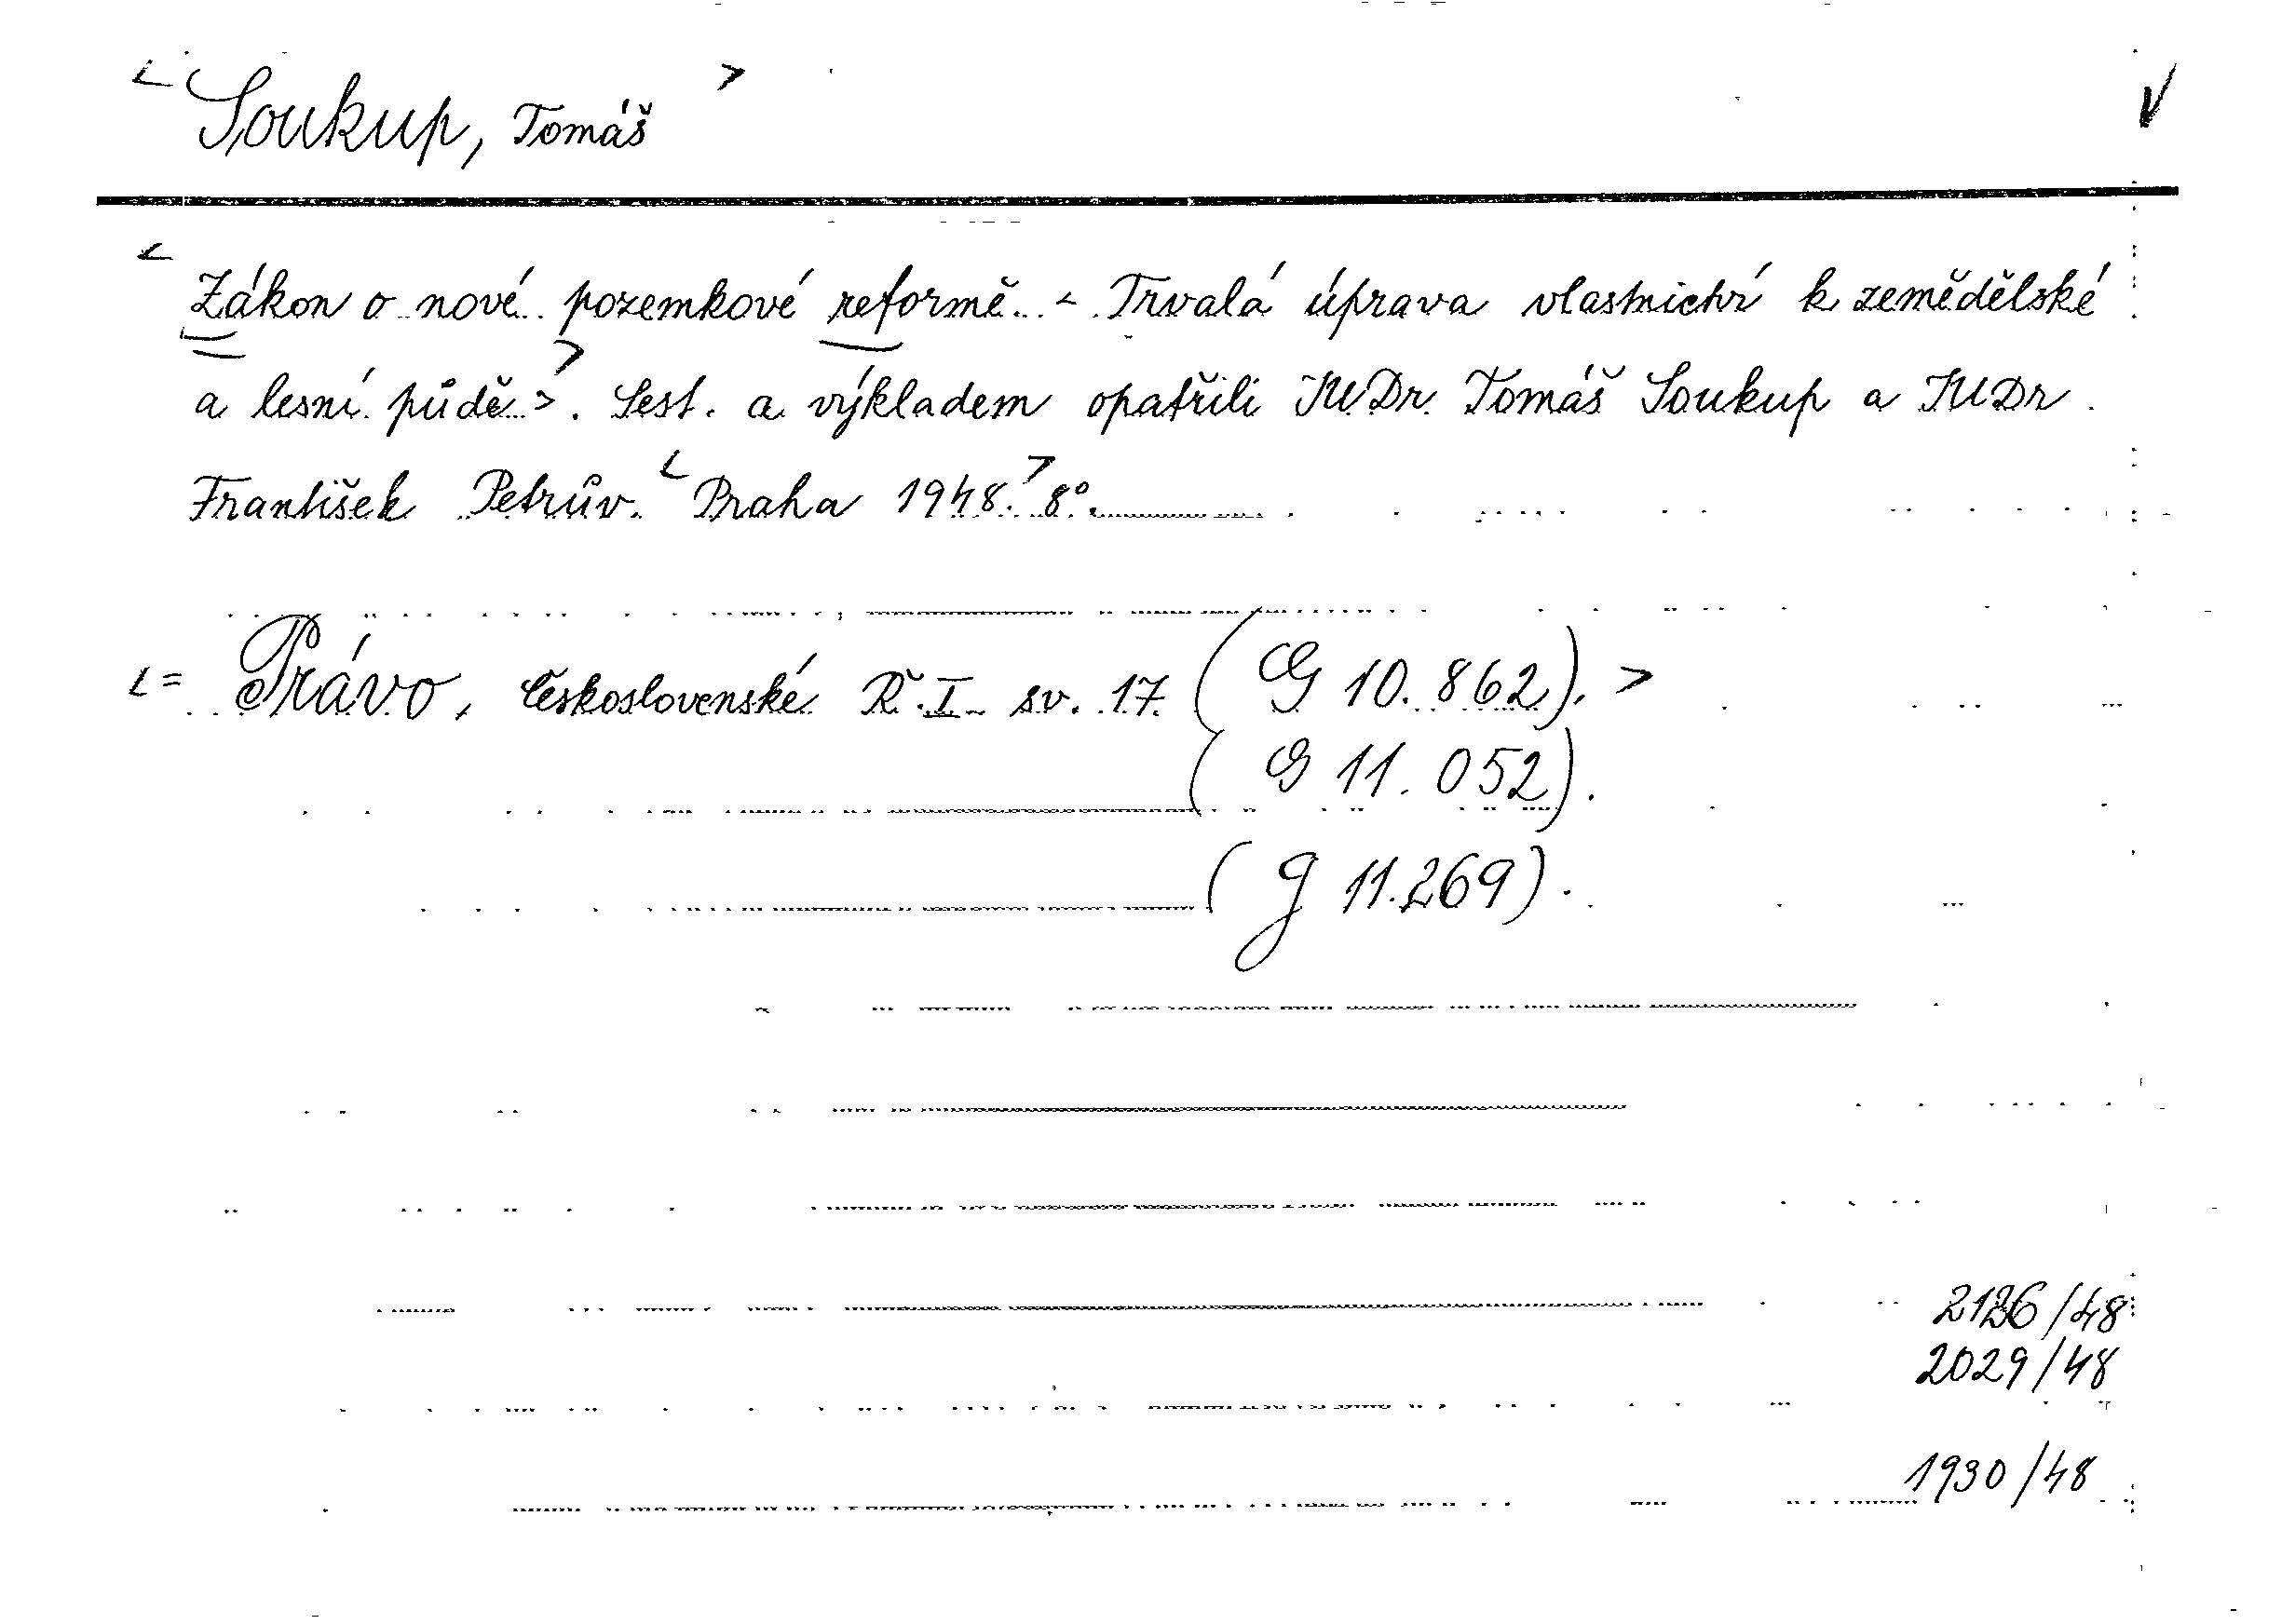 < Soukup, Tomáš > V
< Zákon o nové pozemkové reformě. < Trvalá úprava vlastnictví k zemědělské
a lesní půdě >>. Sest. a výkladem opatřili JUDr. Tomáš Soukup a JUDr.
František Petrův. < Praha 1948. > 8°.
< = Právo, Československé Ř. I. sv. 17. (G 10.862). >
(G 11.052).
(G 11.269).
/48
2029/48
1930/48